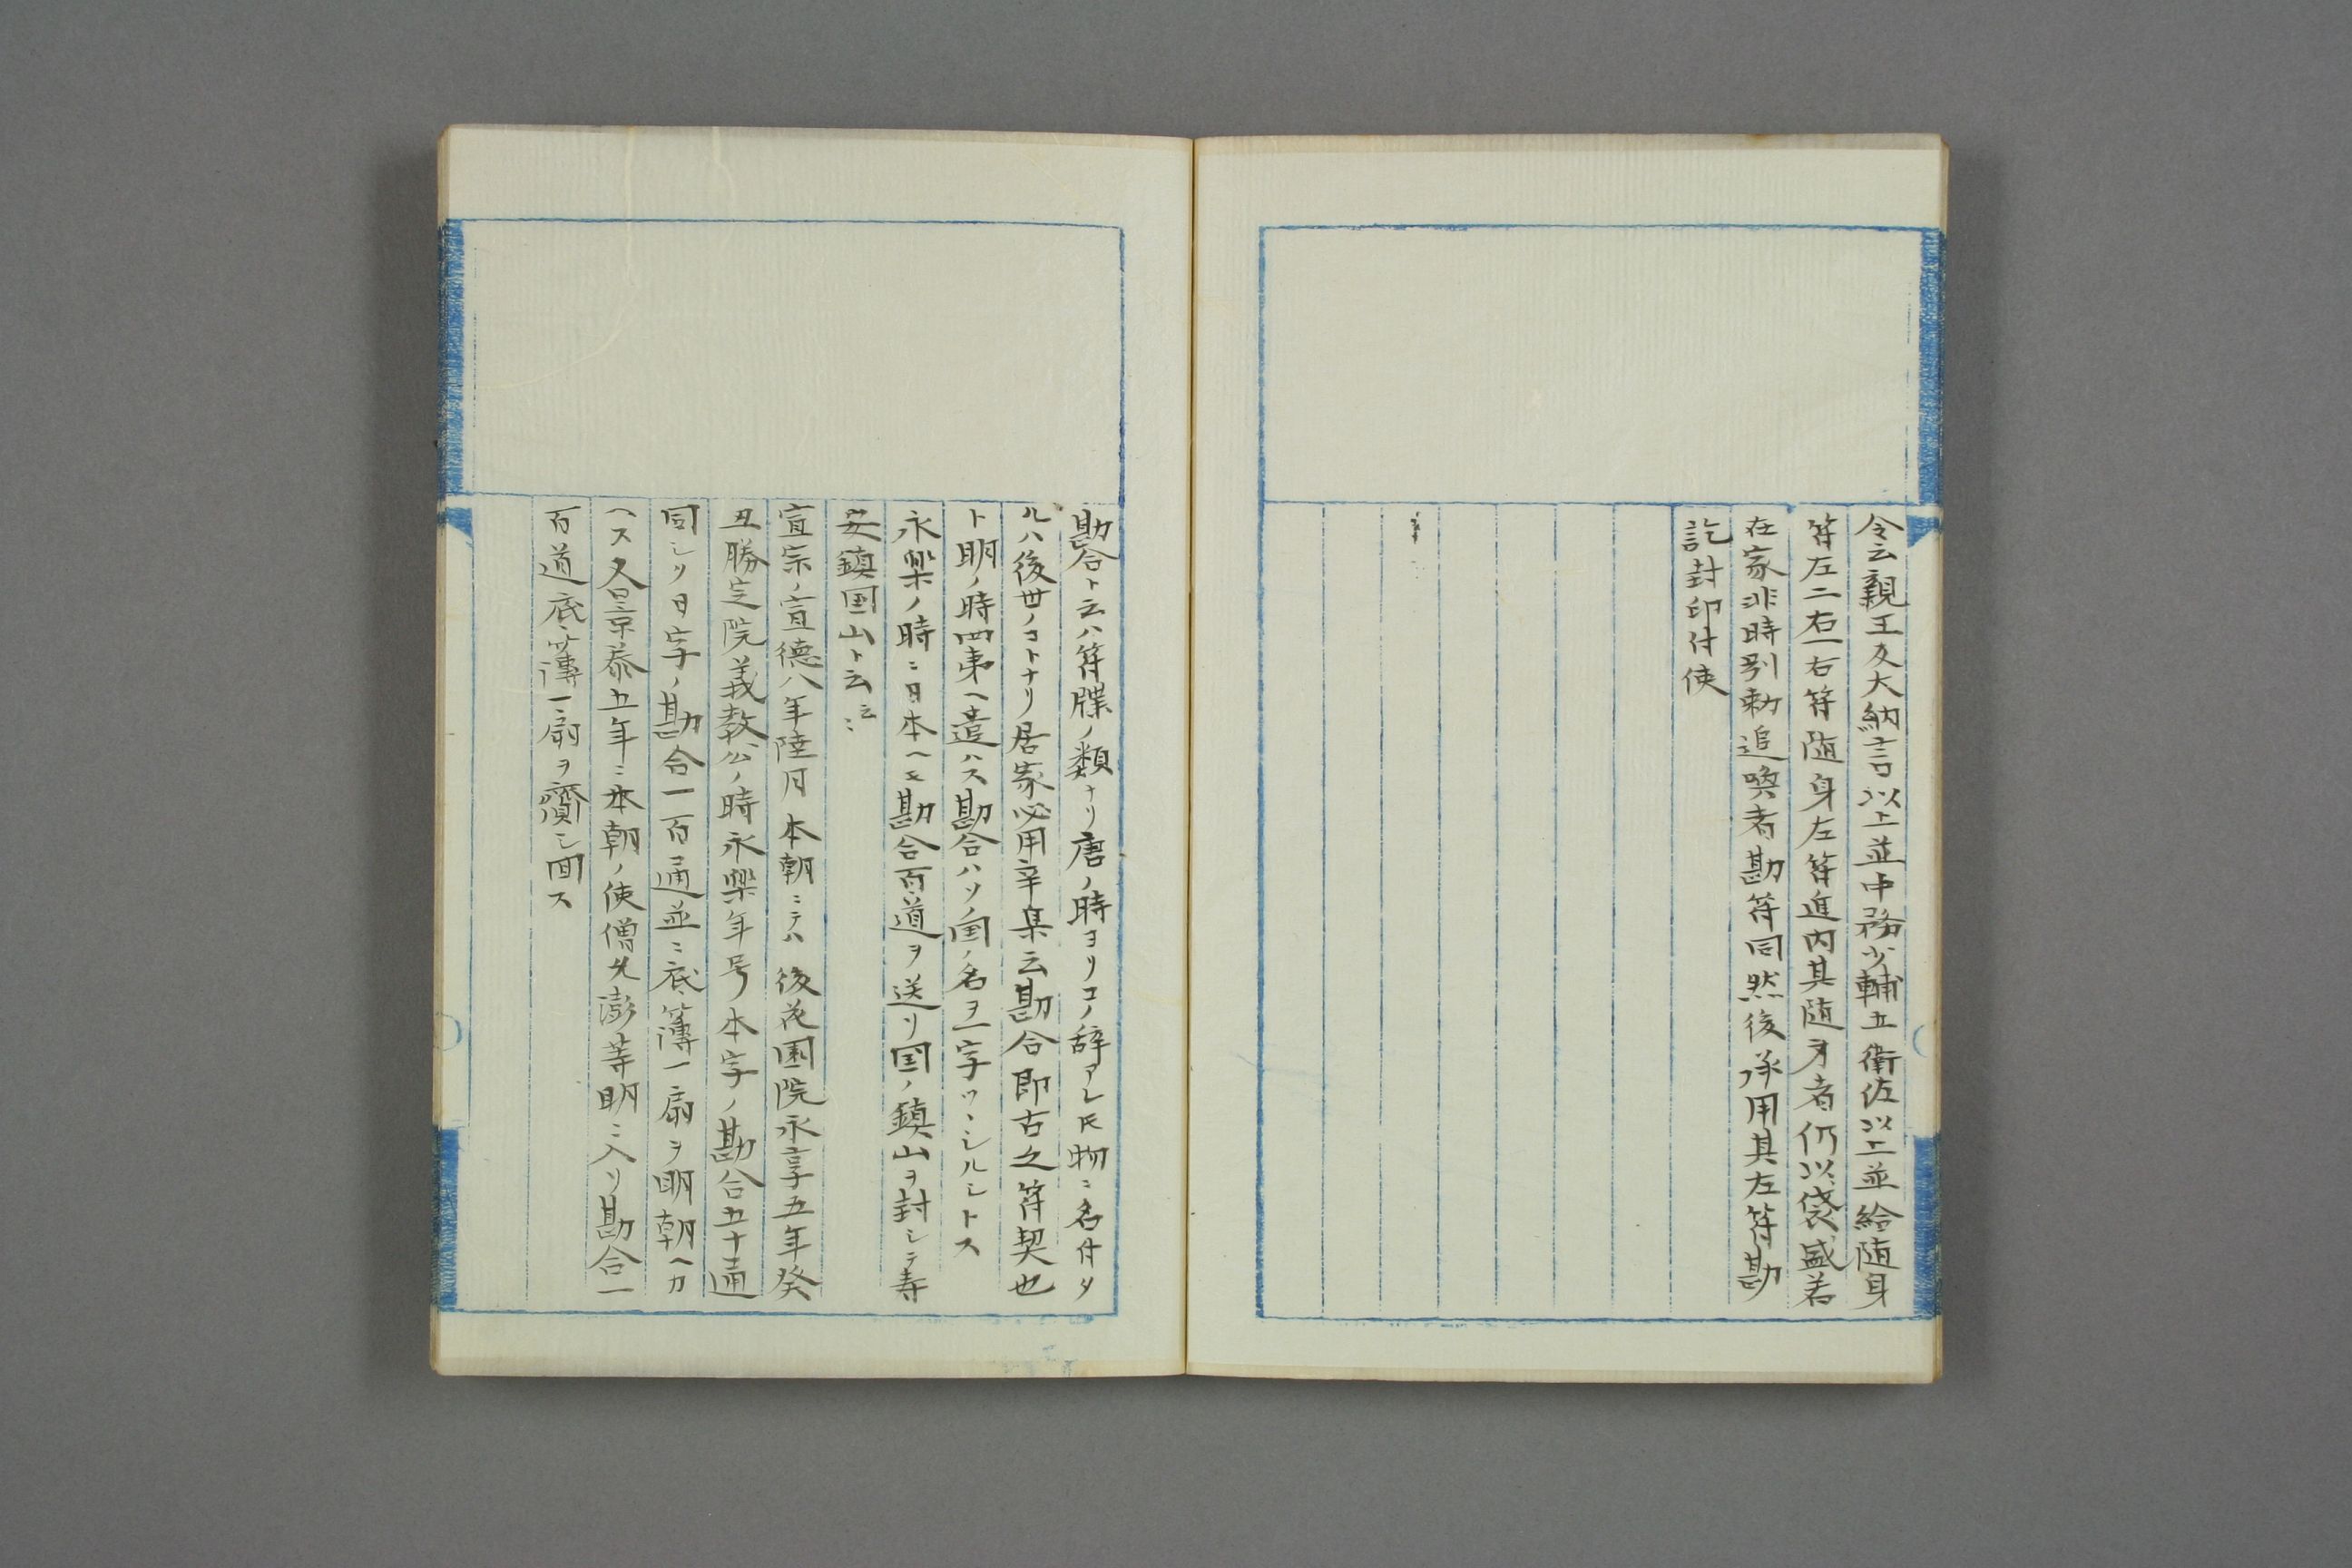 令云親王及大納言以上並中務少輔五衛佐以上並給随身
符左二右一右符随身左符進内其随身者仍以袋盛若
在家非時別勅追喚者勘符同然後承用其左符勘
訖封印付使
勘合ト云ハ符牒ノ類ナリ唐ノ時ヨリコノ辞アレ𪜈物ニ名付タ
ルハ後世ノコトナリ居家必用辛集云勘合即古之符契也
ト明ノ時四夷ヘ遣ハス勘合ハソノ国ノ名ヲ一字ツヽシルシトス
永樂ノ時ニ日本ヘモ勘合百道ヲ送リ国ノ鎮山ヲ封シテ寿
安鎮国山ト云云
宣宗ノ宣徳八年陸月本朝ニテハ後花園院永享五年癸
丑勝定院義教公ノ時永樂年号本字ノ勘合五十通
同シク日字ノ勘合一百通並ニ底簿一扇ヲ明朝ヘカ
ヘス又景泰五年ニ本朝ノ使僧允澎等明ニ入リ勘合一
百道底簿一扇ヲ齎シ回ス